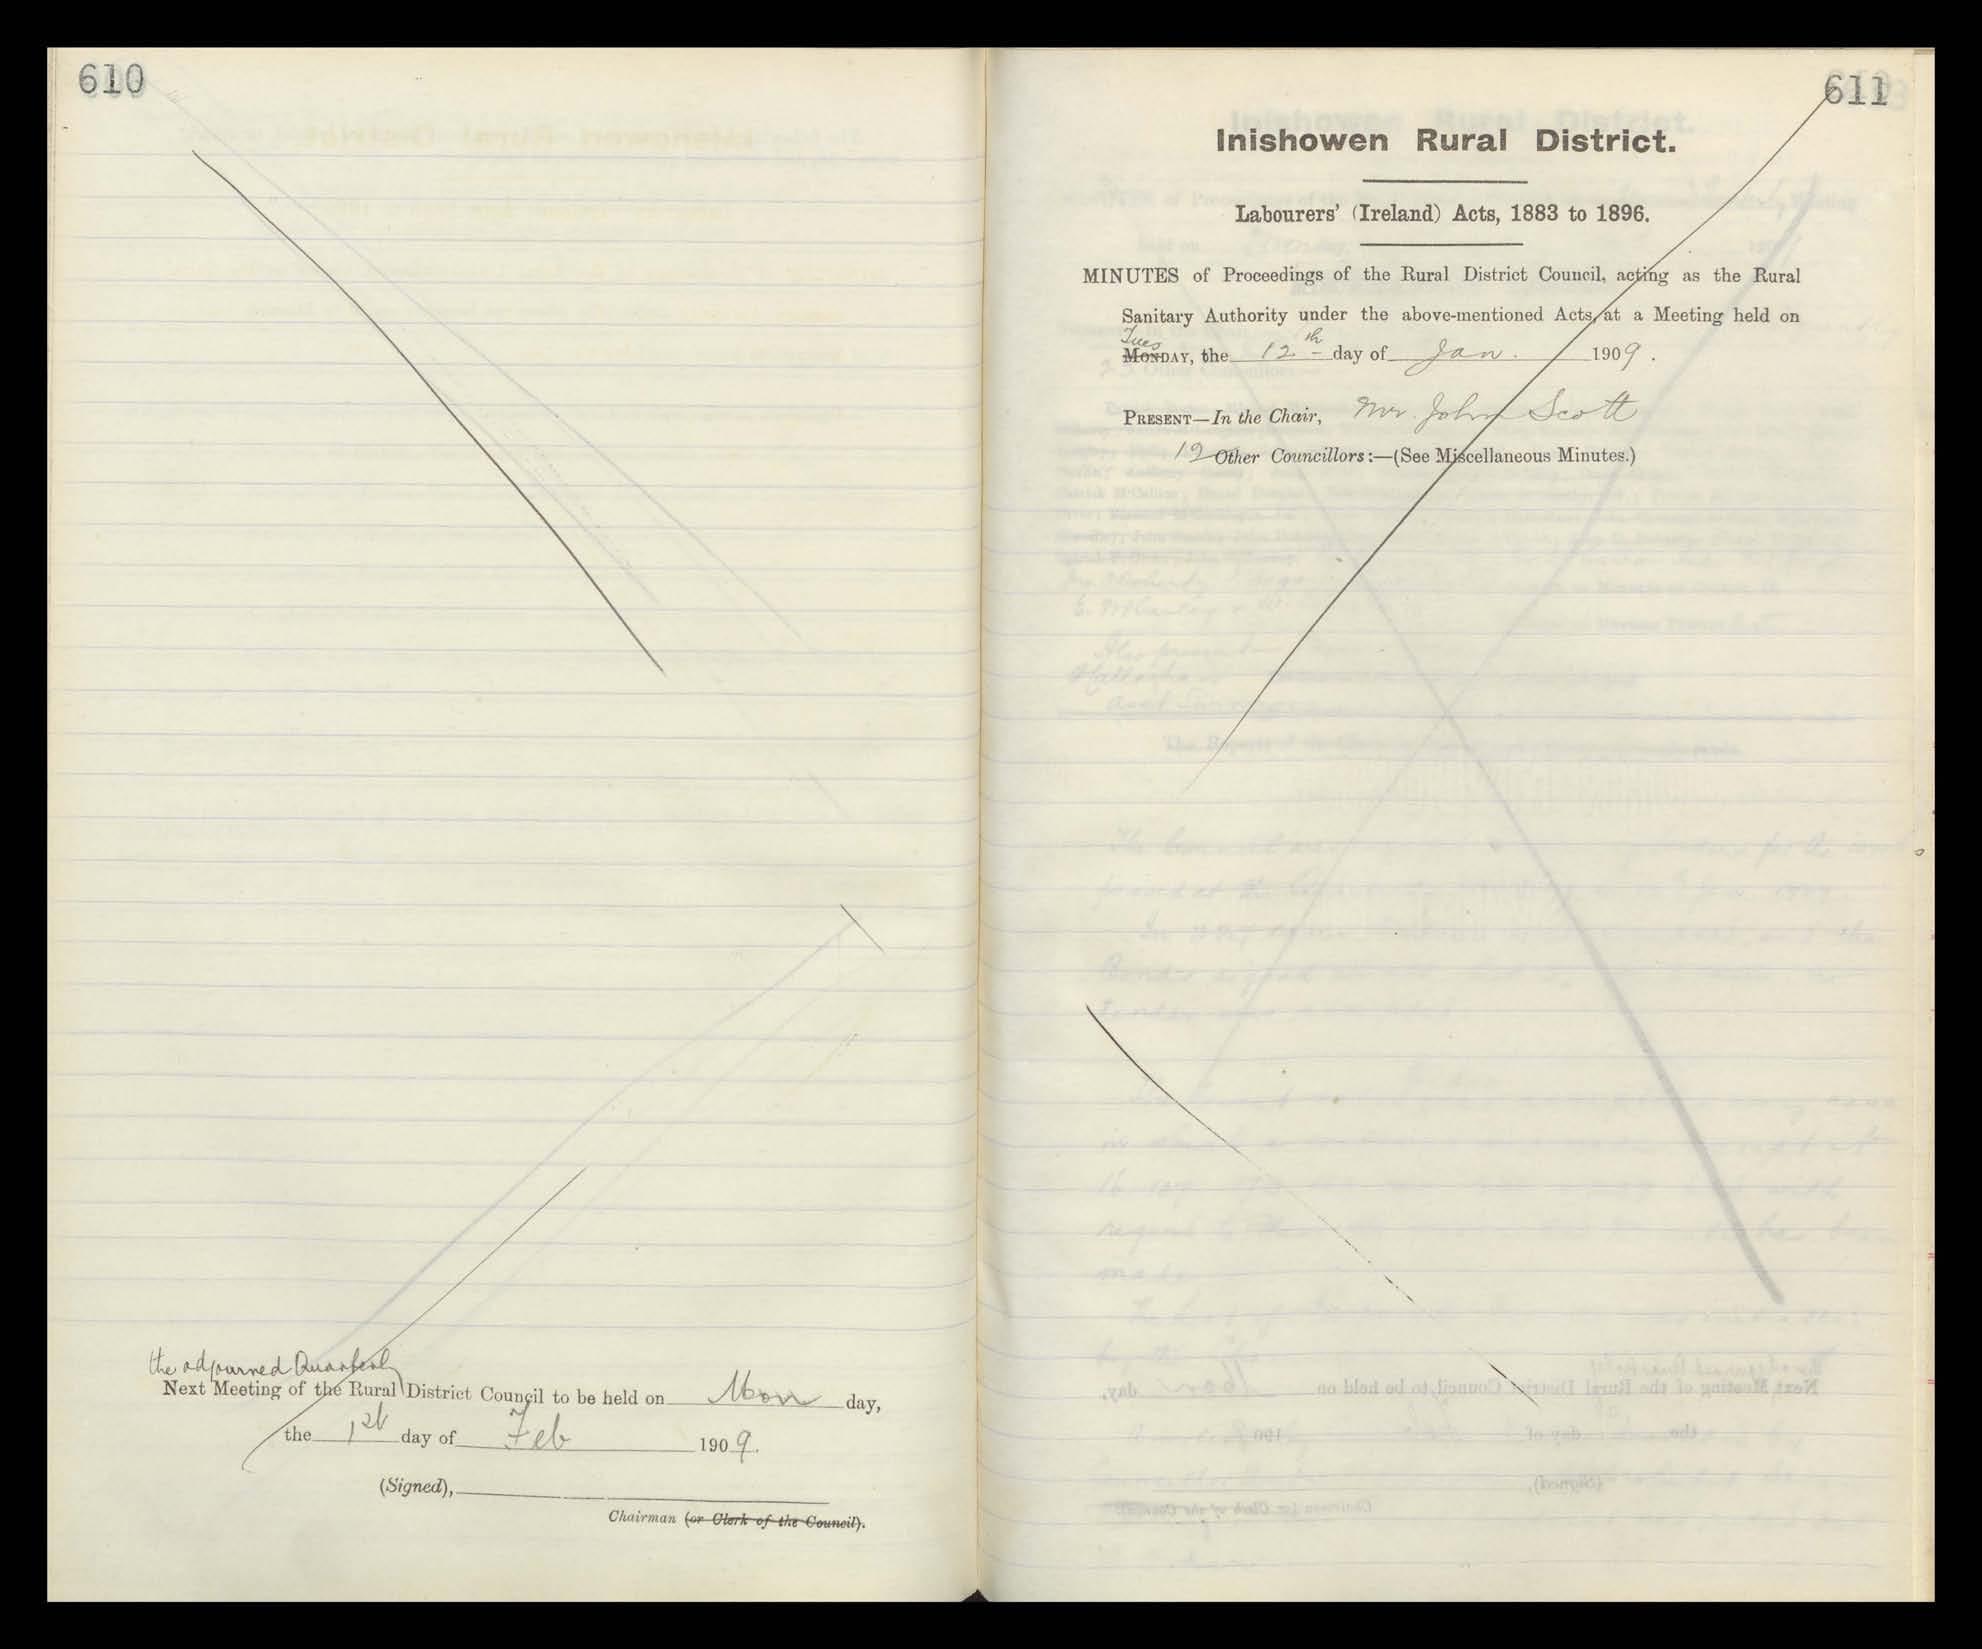 610
the adjourned Quarterly
Next Meeting of the Rural District Council to be held on Mon day,
the 1st day of Feb 1909.
(Signed),
Chairman (or Clerk of the Council).
611
Inishowen Rural District.
Labourers' (Ireland) Acts, 1883 to 1896.
MINUTES of Proceedings of the Rural District Council, acting as the Rural
Sanitary Authority under the above-mentioned Acts, at a Meeting held on
Tues
MONDAY, the 12th day of Jan. 1909.
PRESENT—In the Chair, Mr. John Scott
19 Other Councillors:—(See Miscellaneous Minutes.)